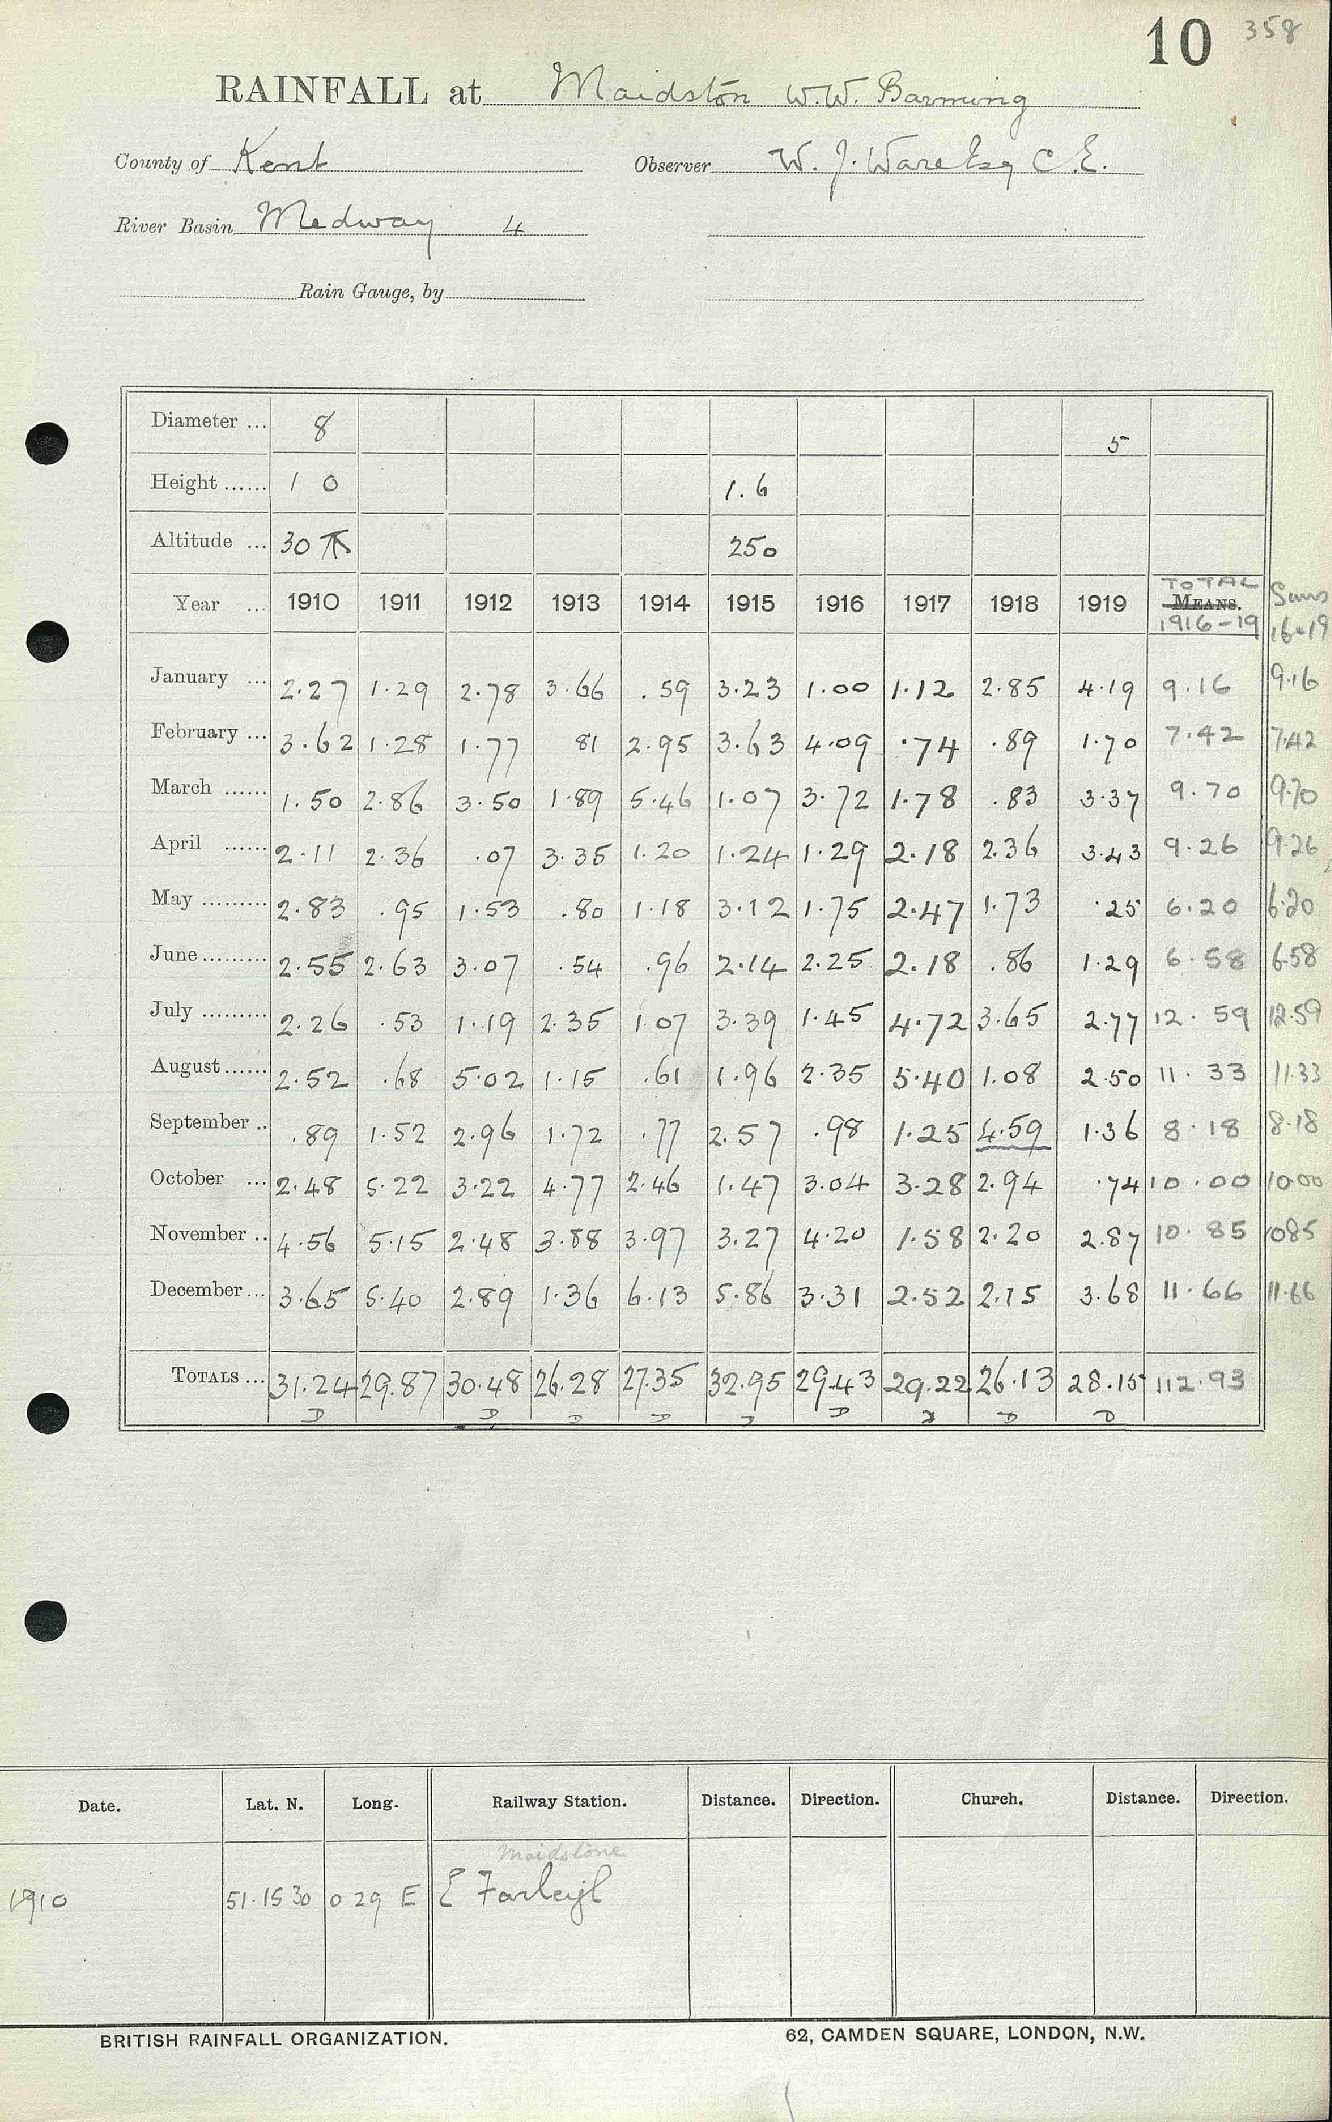 10 358
RAINFALL at Maidston W.W. Barming
County of Kent Observer W. J. Ware Esq C.E.
River Basin Medway 4
Rain Gauge, by
Diameter ... 8 5
Height ...... 1 0 1.6
Altitude ... 30 250
Year ... 1910 1911 1912 1913 1914 1915 1916 1917 1918 1919 TOTAL MEANS. 1916-19 Sums 16-19
January ... 2.27 1.29 2.78 3.66 .59 3.23 1.00 1.12 2.85 4.19 9.16 9.16
February ... 3.62 1.28 1.77 81 2.95 3.63 4.09 .74 .89 1.70 7.42 7.42
March ...... 1.50 2.86 3.50 1.89 5.46 1.07 3.72 1.78 .83 3.37 9.70 9.70
April ...... 2.11 2.36 .07 3.35 1.20 1.24 1.29 2.18 2.36 3.43 9.26 9.26
May ......... 2.83 .95 1.53 .80 1.18 3.12 1.75 2.47 1.73 .25 6.20 6.20
June ......... 2.55 2.63 3.07 .54 .96 2.14 2.25 2.18 .86 1.29 6.58 6.58
July ......... 2.26 .53 1.19 2.35 1.07 3.39 1.45 4.72 3.65 2.77 12.59 12.59
August ...... 2.52 .68 5.02 1.15 .61 1.96 2.35 5.40 1.08 2.50 11.33 11.33
September .. .89 1.52 2.96 1.72 .77 2.57 .98 1.25 4.59 1.36 8.18 8.18
October ... 2.48 5.22 3.22 4.77 2.46 1.47 3.04 3.28 2.94 .74 10.00 10.00
November .. 4.56 5.15 2.48 3.88 3.97 3.27 4.20 1.58 2.20 2.87 10.85 1085
December ... 3.65 5.40 2.89 1.36 6.13 5.86 3.31 2.52 2.15 3.68 11.66 11.66
TOTALS ... 31.24 29.87 30.48 26.28 27.35 32.95 29.43 29.22 26.13 28.15 112.93
Date. Lat. N. Long. Railway Station. Distance. Direction. Church. Distance. Direction.
Maidstone
1910 51.15 30 0 29 E E Farleigh
BRITISH RAINFALL ORGANIZATION. 62, CAMDEN SQUARE, LONDON, N.W.